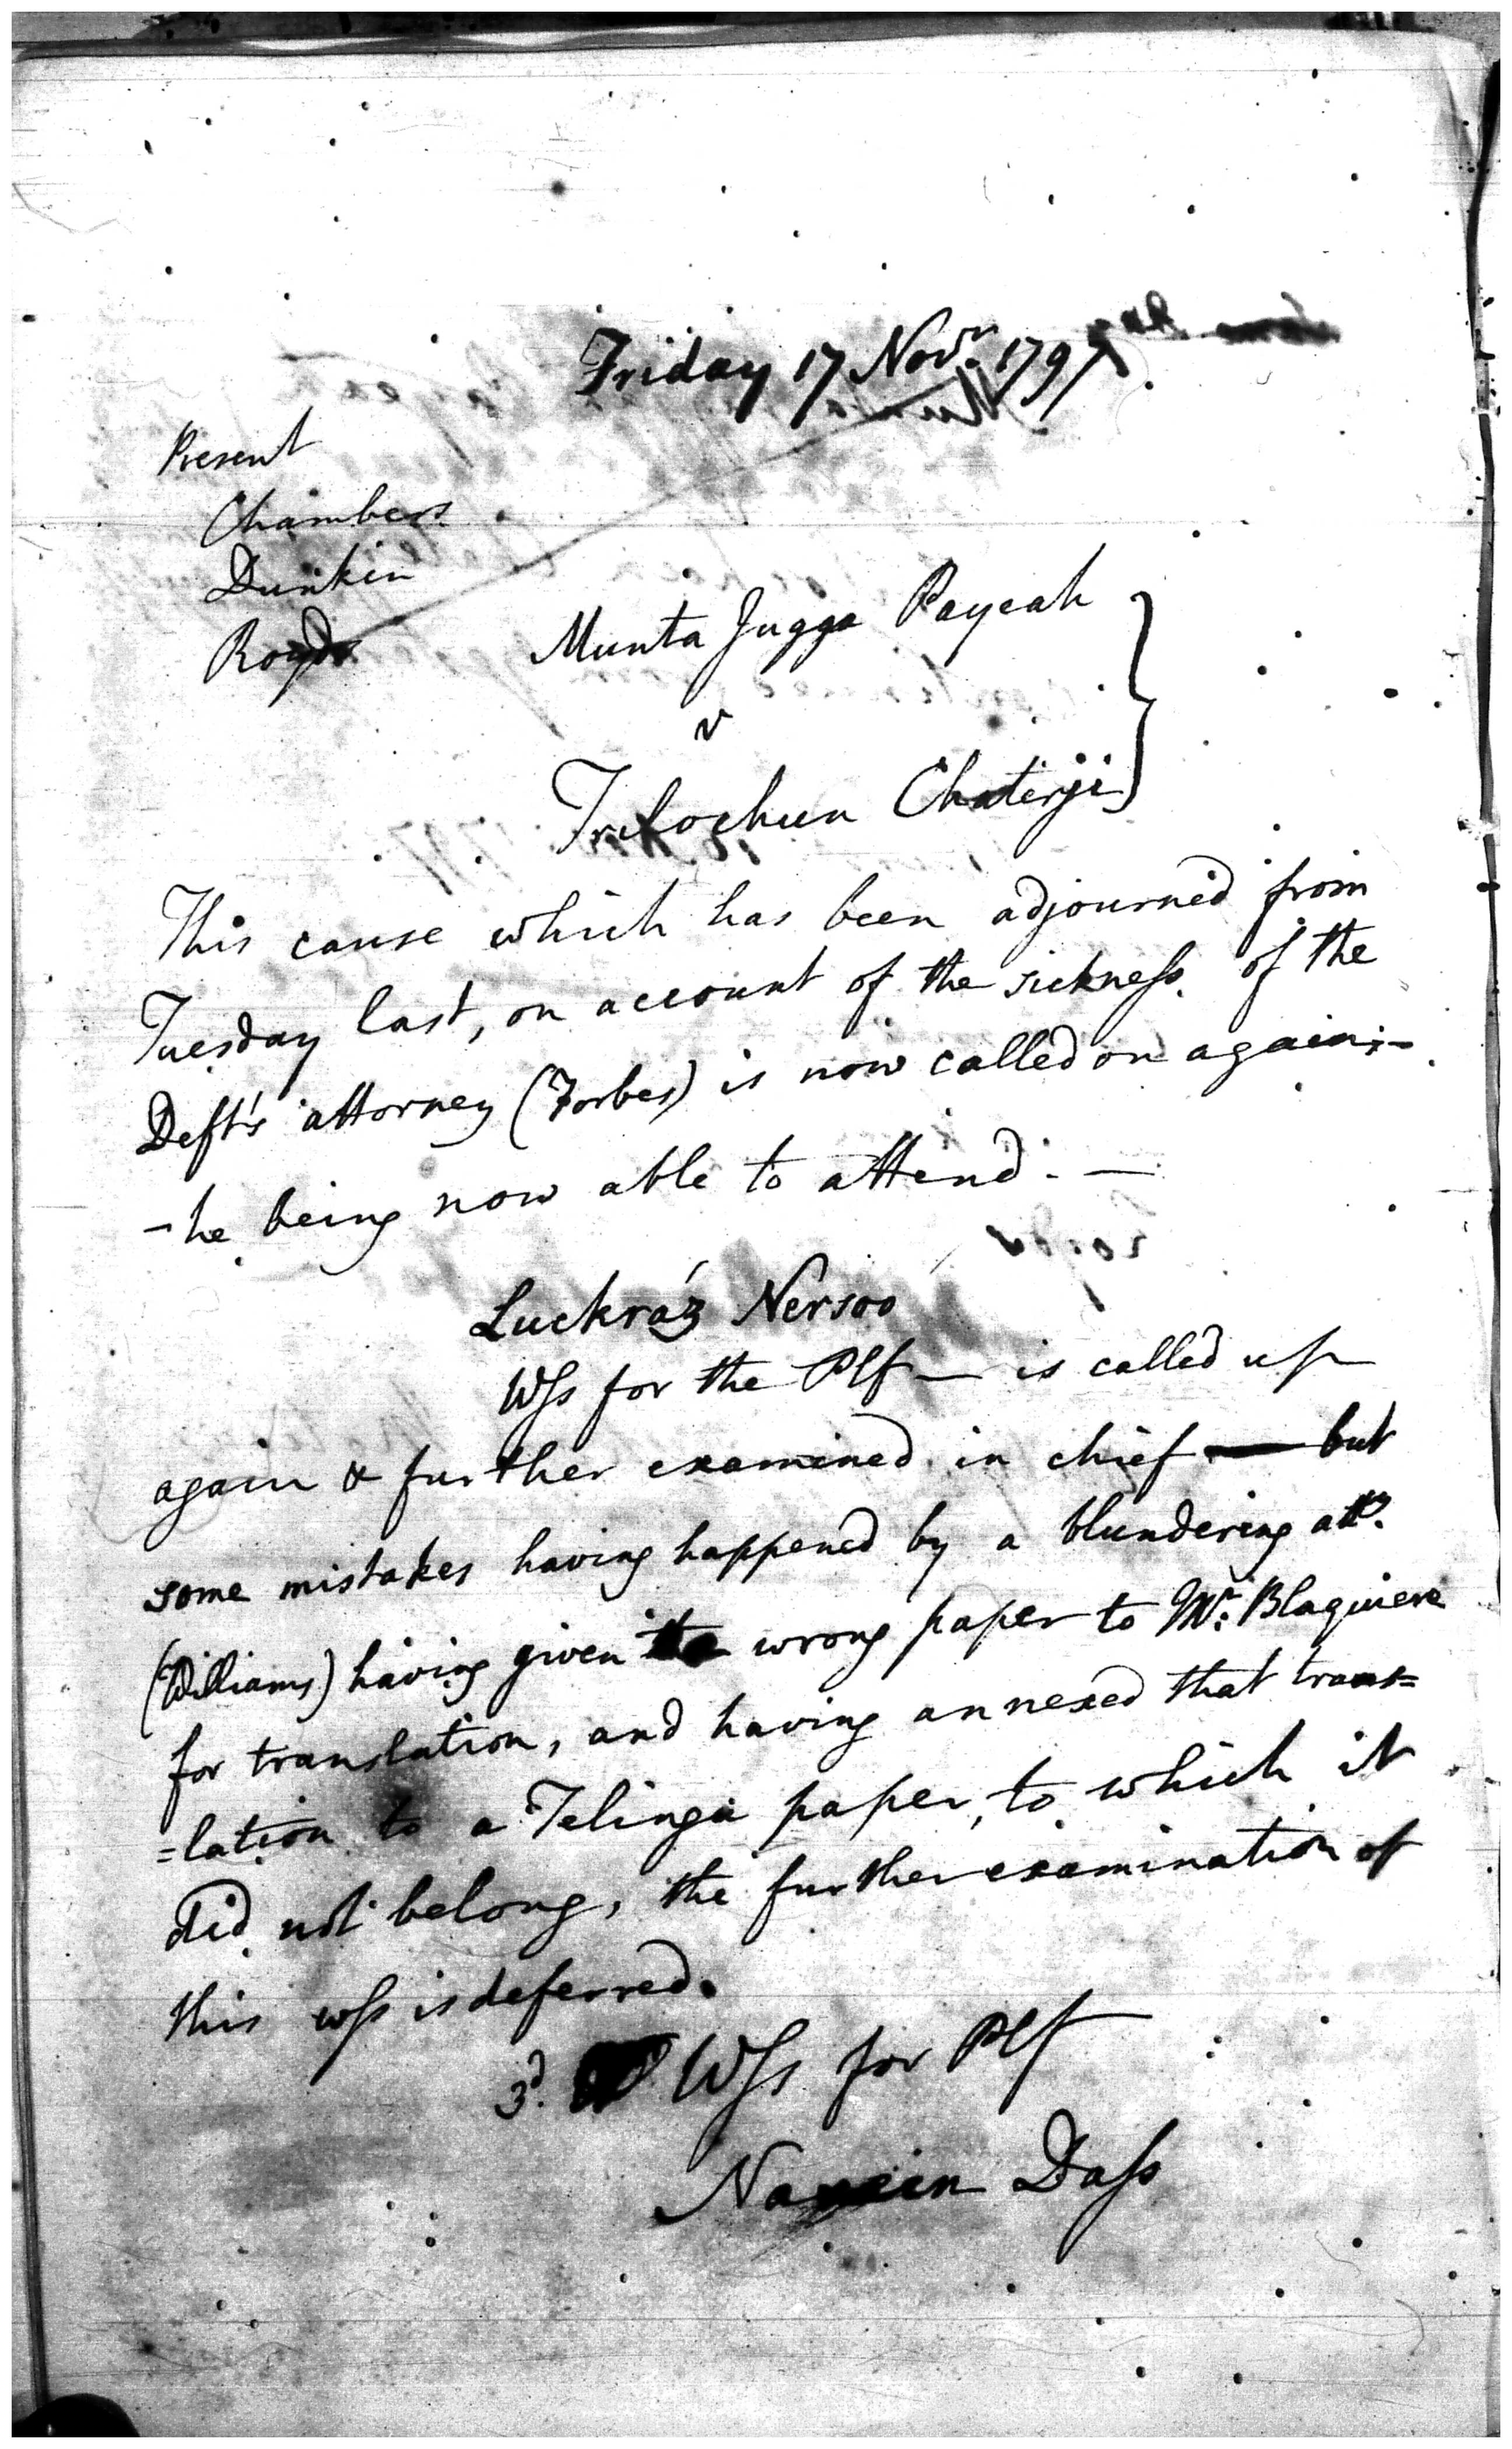 Friday 17 Novr. 1797.
Present
Chambers
Dunkin
Royds
Munta Jugga Payeah
v
Trilochun Chaterji
This cause which has been adjourned from
Tuesday last, on account of the sickness of the
Deft's attorney (Forbes) is now called on again;-
- he being now able to attend. —
Luckráz Nersoo
Wss for the Plf — is called up
again & further examined in chief — but
some mistakes having happened by a blundering atty.
(Williams) having given the wrong paper to Mr. Blaquiere
for translation, and having annexed that trans=
=lation to a Telinga paper, to which it
did not belong, the further examination of
this wss is deferred.
3d. Wss for Plf
Dass